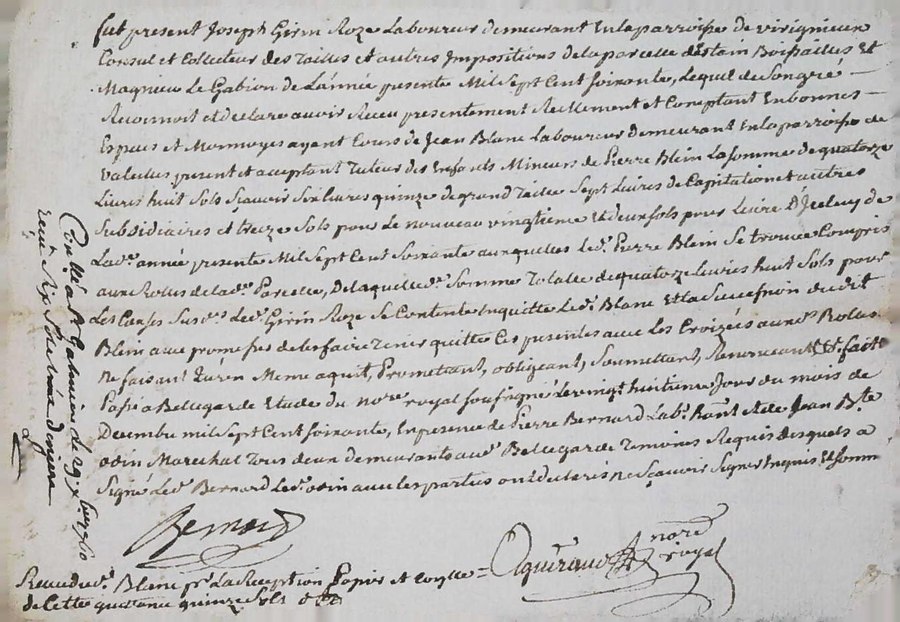 fut present Joseph Girin Roze Laboureur demeurant En la parroisse de virigneux
Consul et Collecteur des Tailles et autres Impositions de la parcelle destain Boissailles Et
Magnieu Le Gabion de L'année presente Mil Sept Cent soixante, Lequel de Son gré —
Reconnoit et declare avoir Receu presentement Reellement et Comptant En bonnes —
Especes et Monnoyes ayant Cours de Jean Blanc Laboureur demeurant En la parroisse de
valeilles present et acceptant Tuteur des Enfants Mineurs de Pierre Blein La somme de quatorze
Livres huit Sols Sçavoir Six livres quinze de grand Taille Sept Livres de Capitation et autres
Subsidiaires et treize Sols pour le nouveau vingtieme Et deux sols pour Livre D'Iceluy de
Lad.e année presente Mil Sept Cent Soixante auxquelles led.t Pierre Blein Se trouve Compris
aux Rolles de lad.e Parcelle, De laquelle d.e Somme Totalle de quatorze Livres huit Sols pour
Les Causes Susd.es led.t Girin Roze Se Contente En quitte Led.t Blanc Et la Succession dudit
Blein avec promesse de les faire Tenir quitte Ces presentes avec Les Croizées auxd.s Rolles
Ne faisant qu'un Meme aquit, Promettant, obligeant, Soumettant, Renonceant &c. fait
Passé a Bellegarde Etude du no.re royal soussigné Le vingt huitieme Jour du mois de
Decembre mil Sept Cent Soixante, En presence de Pierre Bernard Lab.r Et de Jean B.te
odin Marechal Tous deux demeurants aud.t Bellegarde Temoins Requis Desquels a
Signé Led.t Bernard Led.t odin avec les parties ont declaré ne Sçavoir Signer Enquis Et Somm
Bernard
no.re
royal
Receu dud.t Blanc p.r La Reception Papier et Con.lle
de Cette quittance quinze Sols
Con.llé a St Galmier le 29 x.bre 1760
receu